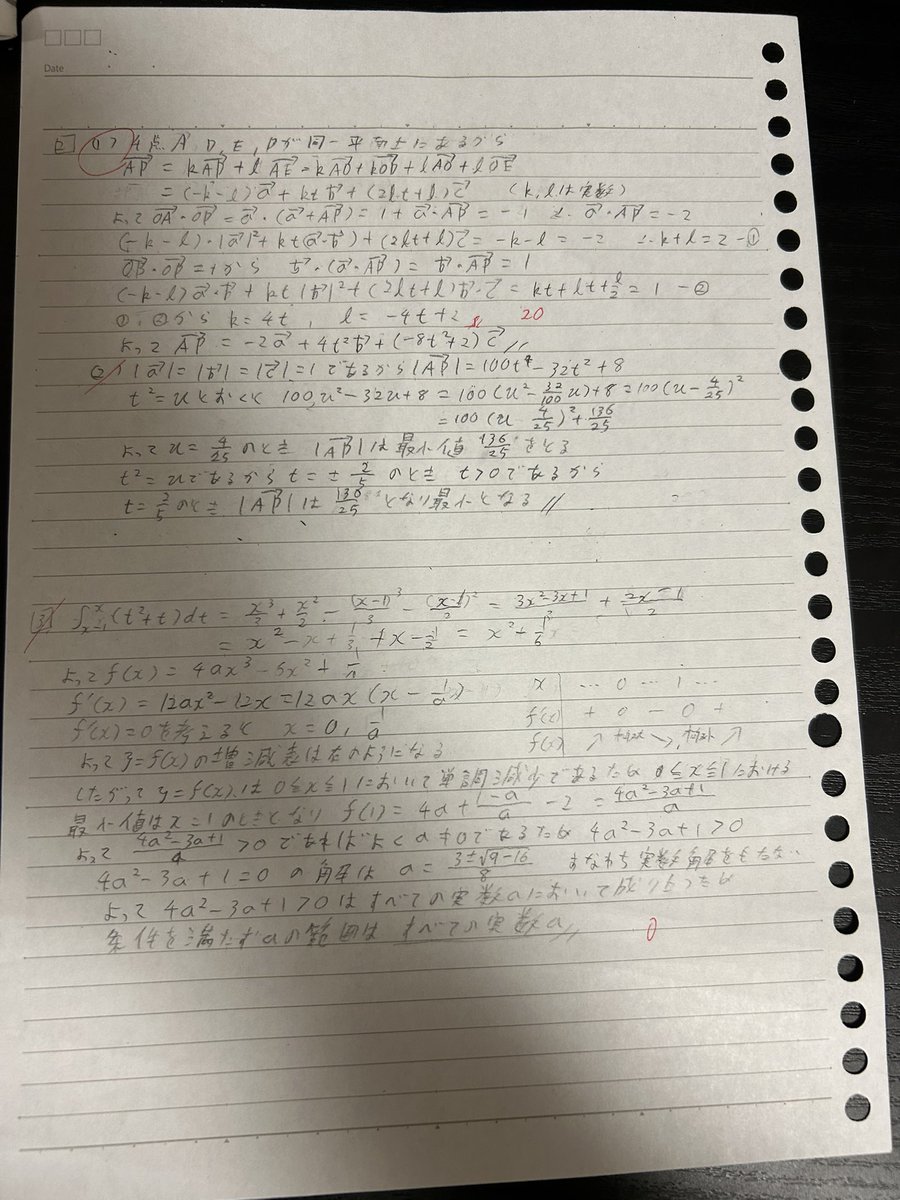 Date
(1) 4点A, D, E, Pが同一平面上にあるから
AP = kAD + lAE = kAO + kOD + lAO + lOE
= (-k-l)a + ktb + (2lt+l)c (k, lは実数)
よって OA・OP = a・(a+AP) = 1 + a・AP = -1 ∴ a・AP = -2
(-k-l)・|a|²+kt(a・b)+(2lt+l)c = -k-l = -2 ∴k+l=2 -①
OB・OP = 1から b・(a・AP) = b・AP = 1
(-k-l)a・b + kt|b|²+(2lt+l)b・c = kt+lt+l/2 = 1 -②
①, ②から k=4t, l=-4t+2 20
よって AP = -2a+4t²b+(-8t²+2)c //
(2) |a|=|b|=|c|=1であるから|AP|=100t⁴-32t²+8
t²=uとおくと 100u²-32u+8 = 100(u²-32/100u)+8 = 100(u-4/25)²
= 100(u 4/25)²+136/25
よってu=4/25のとき |AP|は最小値136/25をとる
t²=uであるからt=±2/5のとき t>0であるから
t=2/5のとき |AP|は136/25となり最小となる //
[3] ∫(t²+t)dt = x³/3+x²/2-(x-1)³/3-(x-1)²/2 = 3x²-3x+1/3+2x-1/2
= x²-x+1/3+x-1/2 = x²
よってf(x)=4ax³-6x²+1/a
f'(x)=12ax²-12x=12ax(x-1/a) x … 0 … 1 …
f'(x)=0を考えると x=0, 1/a f'(x) + 0 - 0 +
よってy=f(x)の増減表は右のようになる f(x) ↗ 極大 ↘ 極小 ↗
したがってy=f(x)は0≦x≦1において単調減少であるため0≦x≦1における
最小値はx=1のときとなり f(1)=4a+1-a/a-2=4a²-3a+1/a
よって 4a²-3a+1/a>0であればよくa≠0であるため4a²-3a+1>0
4a²-3a+1=0の解は a=3±√9-16/8 すなわち実数解をもたない
よって4a²-3a+1>0はすべての実数aにおいて成り立つため
条件を満たすaの範囲はすべての実数a // 0